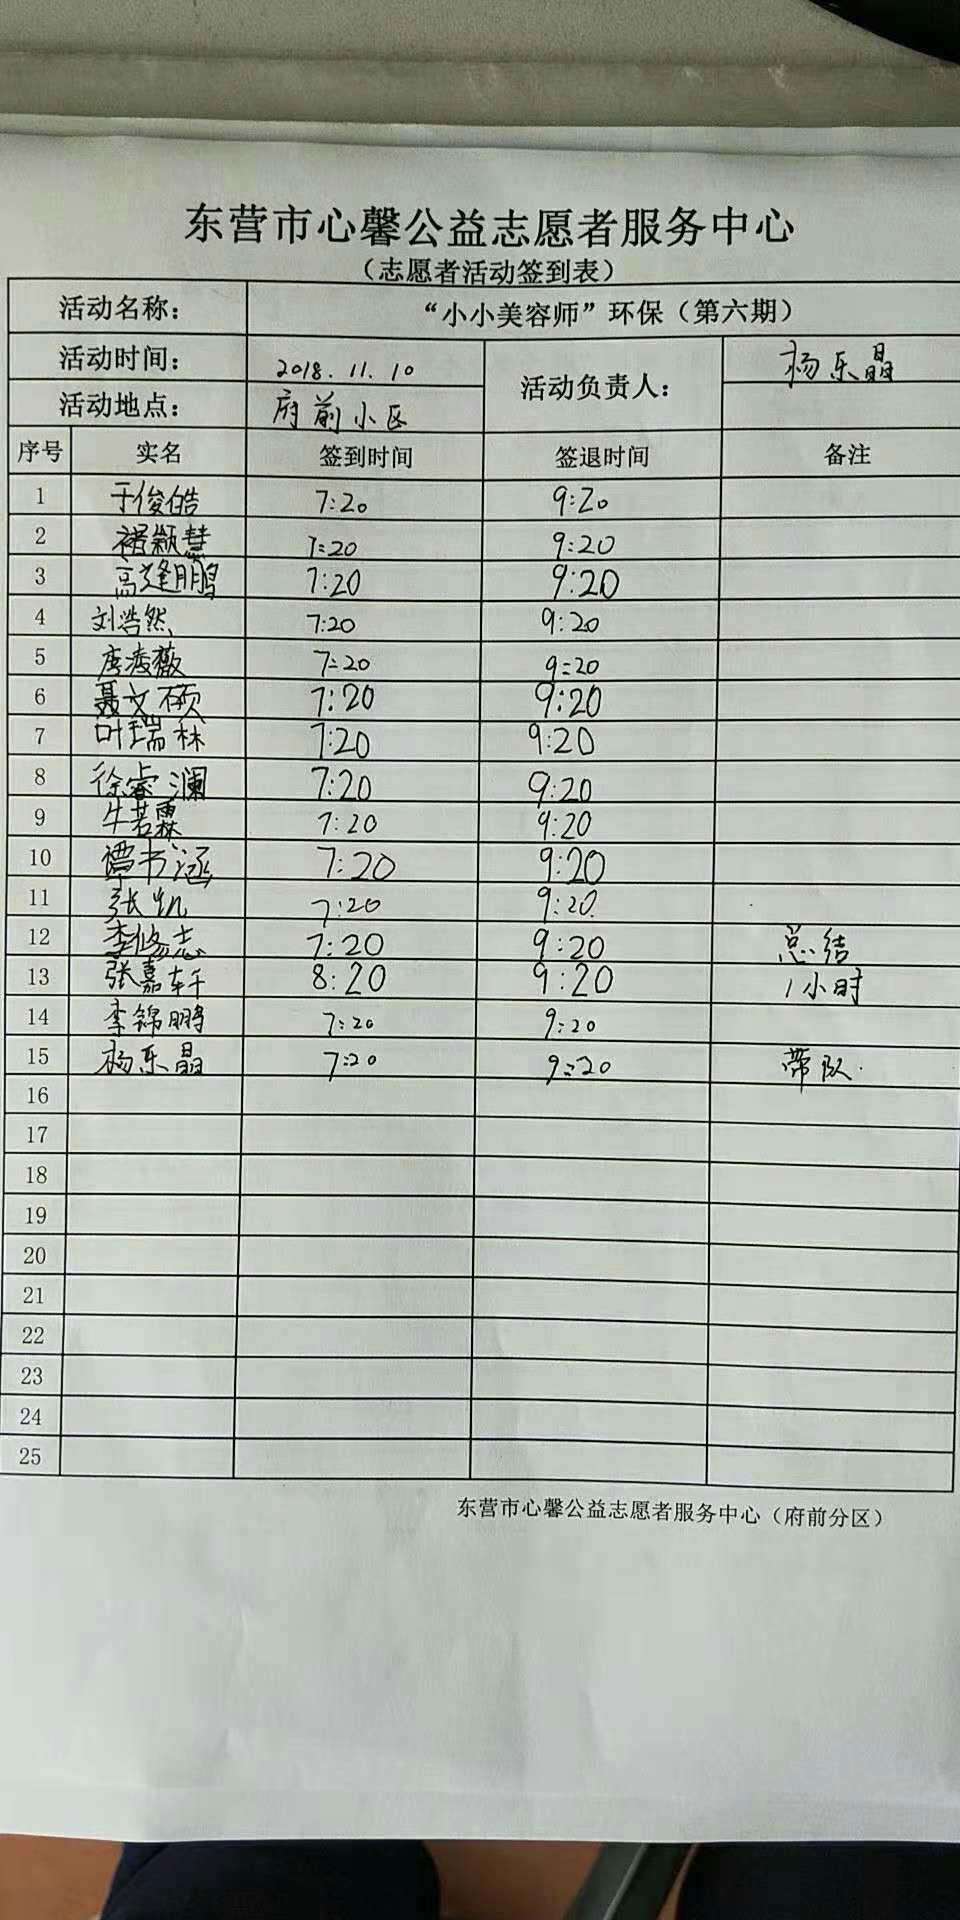 东营市心馨公益志愿者服务中心
（志愿者活动签到表）
活动名称： “小小美容师”环保（第六期）
活动时间： 2018.11.10 活动负责人： 杨乐晶
活动地点： 府前小区
序号 实名 签到时间 签退时间 备注
1 于俊皓 7:20 9:20
2 褚颖慧 7:20 9:20
3 高逢鹏 7:20 9:20
4 刘浩然 7:20 9:20
5 唐凌薇 7:20 9:20
6 聂文硕 7:20 9:20
7 叶瑞林 7:20 9:20
8 徐睿澜 7:20 9:20
9 牛若霖 7:20 9:20
10 谭书涵 7:20 9:20
11 张凯 7:20 9:20
12 李修志 7:20 9:20 总结
13 张嘉轩 8:20 9:20 1小时
14 李锦鹏 7:20 9:20
15 杨乐晶 7:20 9:20 带队.
16
17
18
19
20
21
22
23
24
25
东营市心馨公益志愿者服务中心（府前分区）